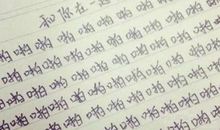 和你在一起
啪啪啪啪啪啪啪啪啪啪
啪啪啪啪啪啪啪啪啪啪
啪啪啪啪啪啪啪啪啪啪
啪啪啪啪啪啪啪啪啪